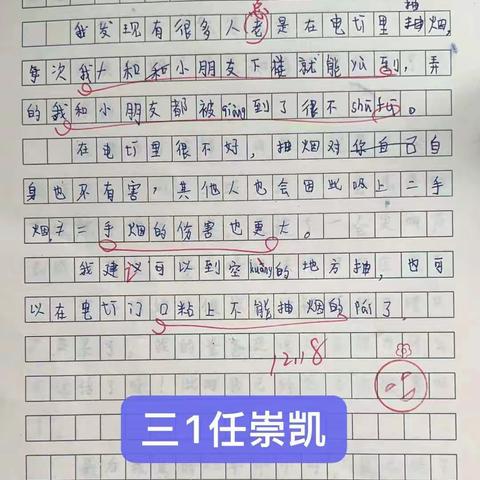 我发现有很多人老是在电切里抽烟,
每次我和小朋友下楼就能yù到,弄
的我和小朋友都被qiàng到了很不shū服。
在电切里很不好,抽烟对自
身也不有害,其他人也会因此吸上二手
烟,二手烟的伤害也更大。
我建议可以到空kuàng的地方抽,也可
以在电切门口粘上不能抽烟的pái了.
12.18
三1任崇凯